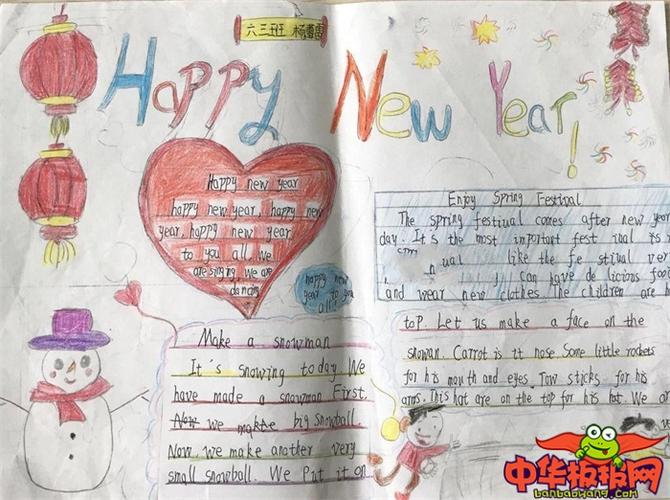 六三班 杨
Happy New Year!
Happy new year
happy new year, happy new
year, happy new year
to you all. We
are singing, we are
dancing.
happy new
year to you
all!
Enjoy Spring Festival
The spring festival comes after new year
day. It's the most important fest ival
like the fe stival
can have de licious
and wear new clothes. The children are
Make a snowman
It's snowing today. We
have made a snowman First.
Now we make big snowball.
Now, we make another very
small snowball. We Put it on
top Let us make a face on the
snowan. Carrot is it nose Some little rockets
for his mouth and eyes. Tow sticks for his
arms. This hat are on the top for his hat. We
中华板报网
banbaowang.com